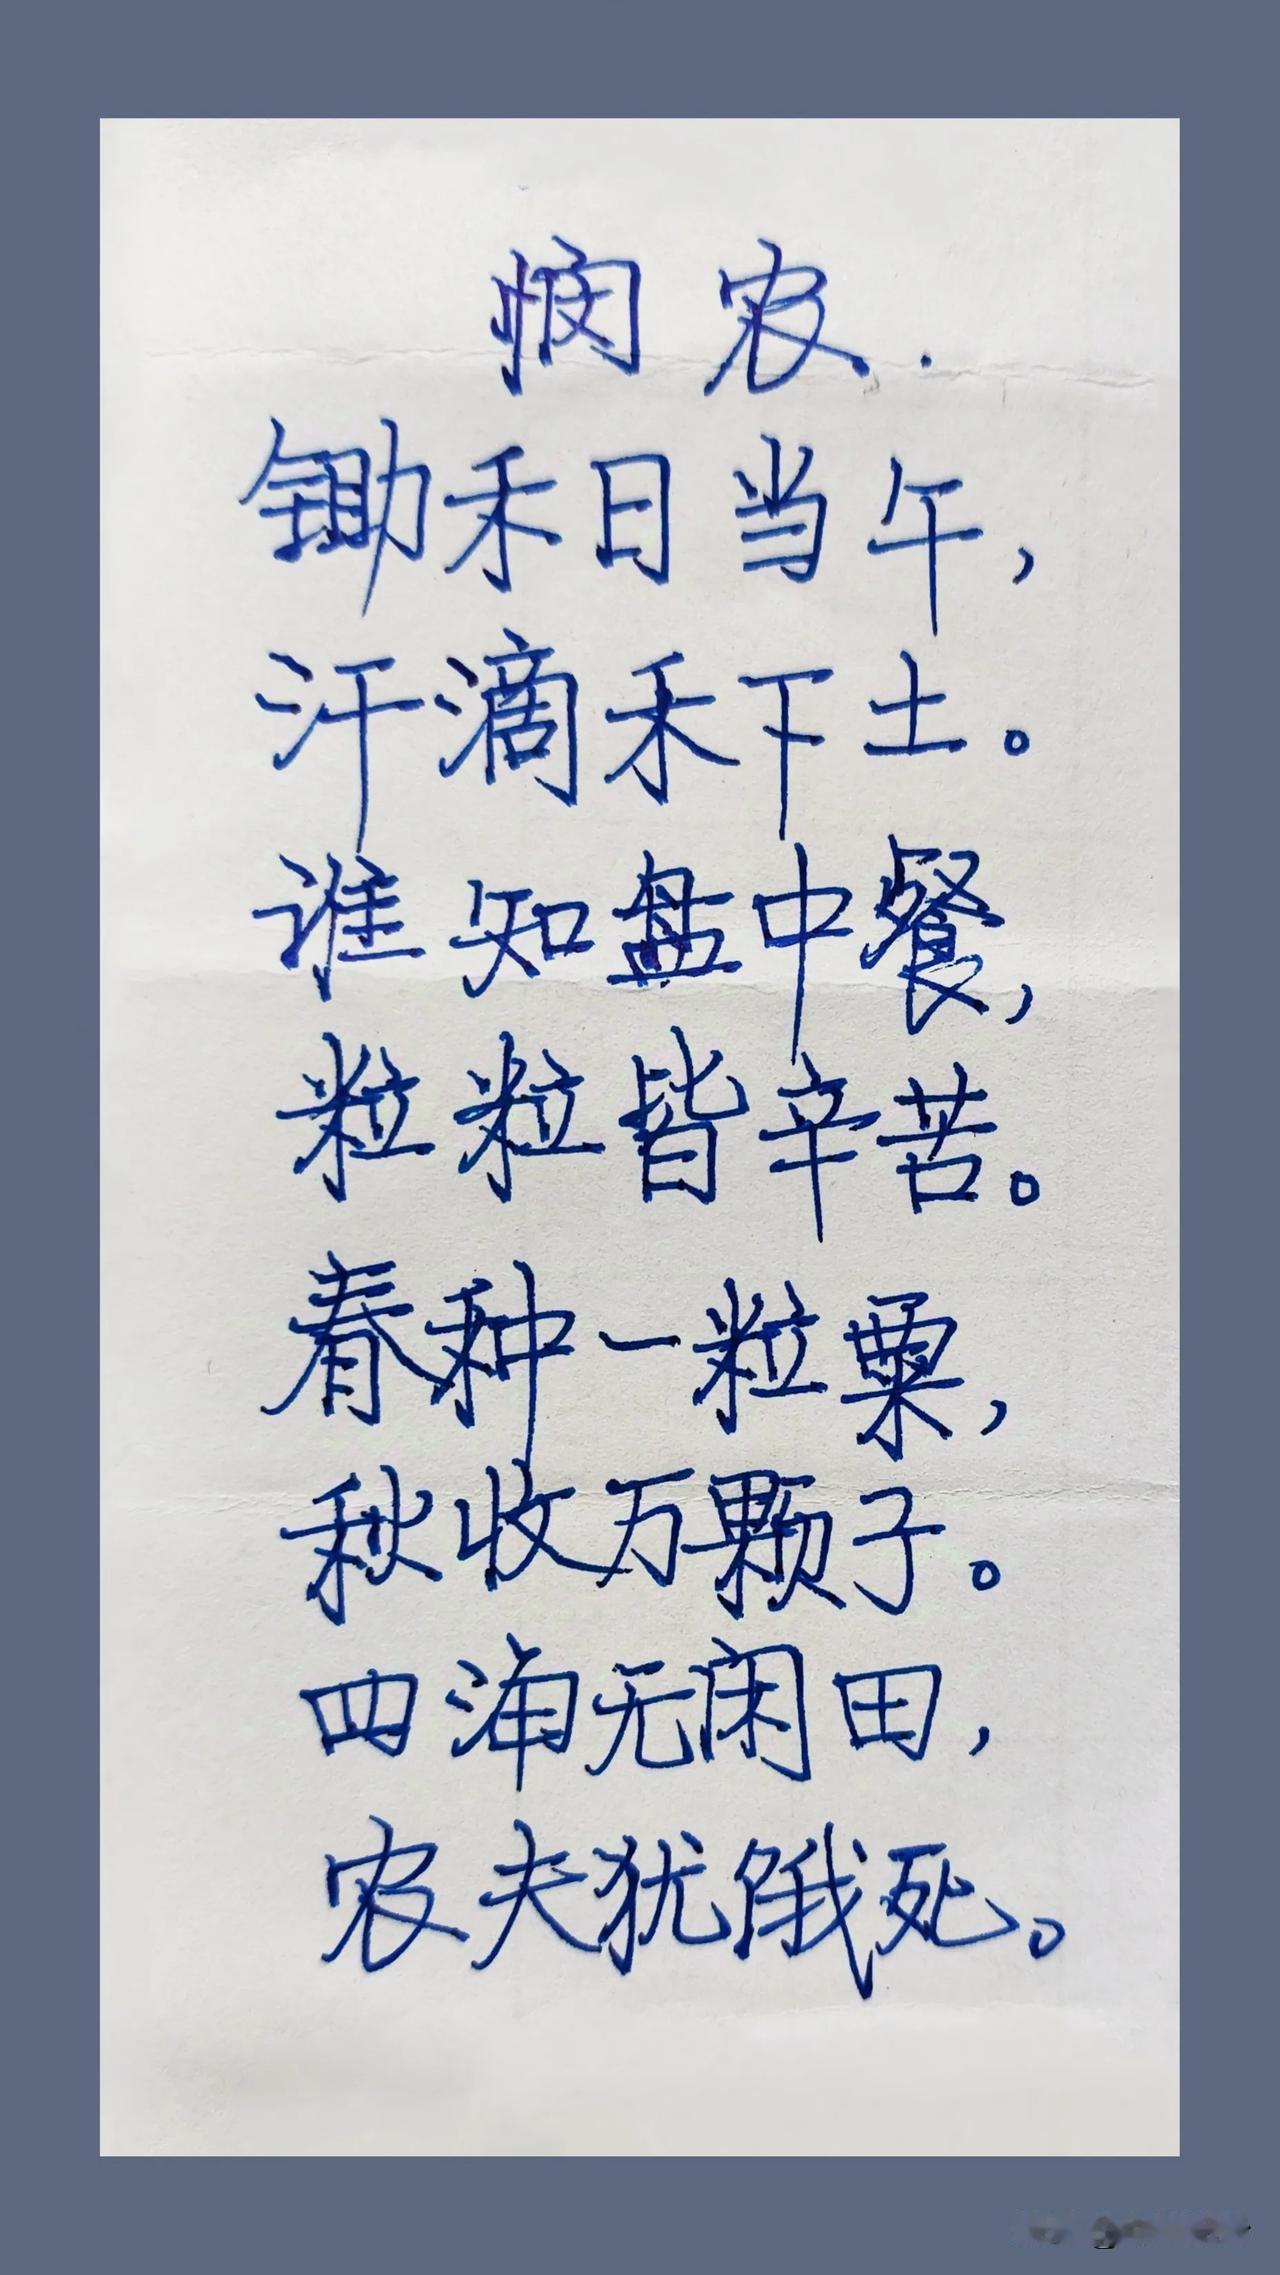 悯农.
锄禾日当午,
汗滴禾下土。
谁知盘中餐,
粒粒皆辛苦。
春种一粒粟,
秋收万颗子。
四海无闲田,
农夫犹饿死。